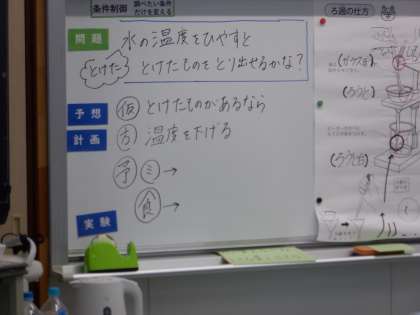 条件制御 調べたい条件
だけを変える
問題 水の温度をひやすと
とけた とけたものをとり出せるかな?
予想 仮 とけたものがあるなら
計画 方 温度を下げる
予 ミ→
食→
実験
ろ過の仕方
(ガラスぼう)
(ろうと)
(ろうと台)